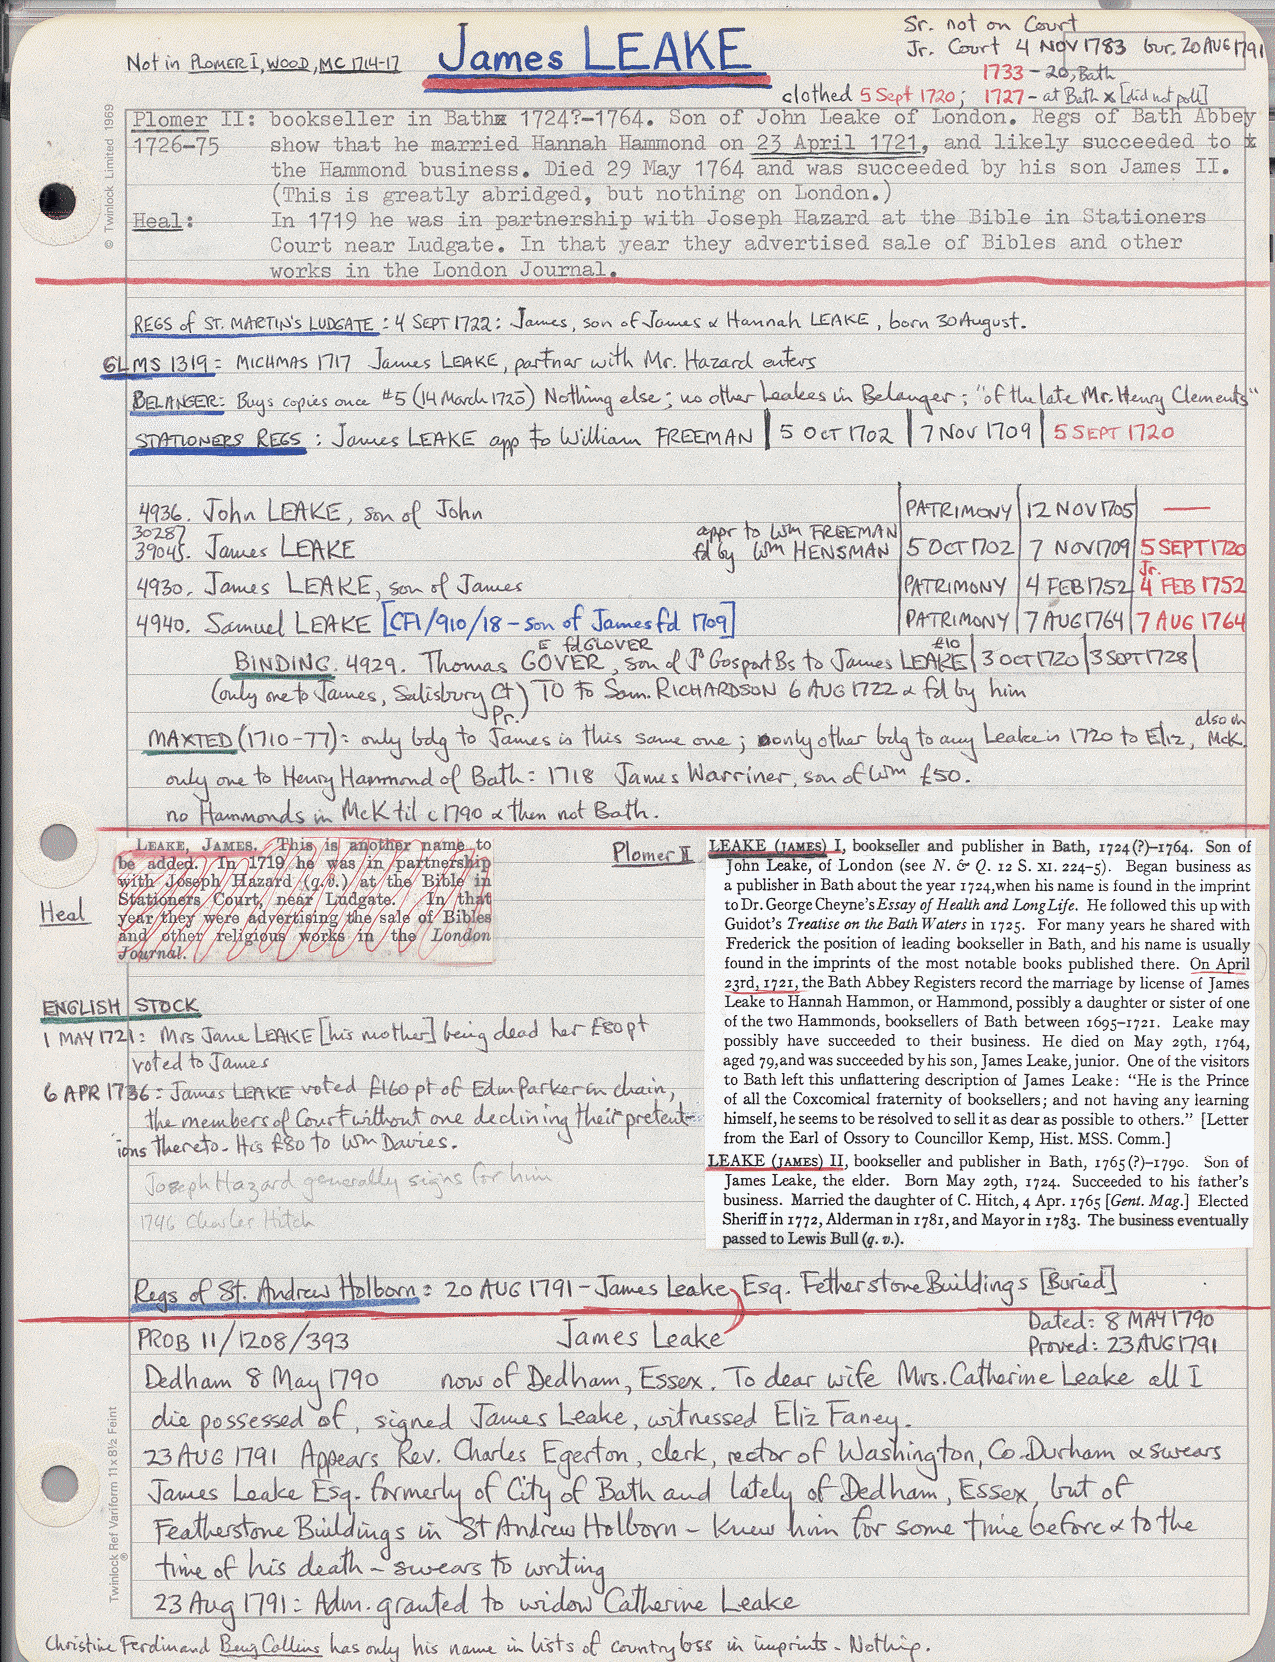 Sr. not on Court
Not in PLOMER I, WOOD, MC 1714-17
James LEAKE
Jr. Court 4 NOV 1783 bur. 20 AUG 1791
1733 - 20, Bath
clothed 5 Sept 1720; 1727 - at Bath x [did not poll]
© Twinlock Limited 1969
Plomer II: bookseller in Bath 1724?-1764. Son of John Leake of London. Regs of Bath Abbey
1726-75 show that he married Hannah Hammond on 23 April 1721, and likely succeeded to
the Hammond business. Died 29 May 1764 and was succeeded by his son James II.
(This is greatly abridged, but nothing on London.)
Heal: In 1719 he was in partnership with Joseph Hazard at the Bible in Stationers
Court near Ludgate. In that year they advertised sale of Bibles and other
works in the London Journal.
REGS of ST. MARTIN'S LUDGATE: 4 SEPT 1722: James, son of James & Hannah LEAKE, born 30 August.
GLMS 1319: MICHMAS 1717 James LEAKE, partner with Mr. Hazard enters
BELANGER: Buys copies once #5 (14 March 1720) Nothing else; no other Leakes in Belanger; "of the late Mr. Henry Clements"
STATIONERS REGS: James LEAKE app to William FREEMAN | 5 OCT 1702 | 7 NOV 1709 | 5 SEPT 1720
4936. John LEAKE, son of John PATRIMONY 12 NOV 1705 —
30287 appr to Wm FREEMAN
39045. James LEAKE fd by Wm HENSMAN 5 OCT 1702 7 NOV 1709 5 SEPT 1720
Jr.
4930. James LEAKE, son of James PATRIMONY 4 FEB 1752 4 FEB 1752
4940. Samuel LEAKE [CF1/910/18 - son of James fd 1709] PATRIMONY 7 AUG 1764 7 AUG 1764
E fd GLOVER £10
BINDING. 4929. Thomas GOVER, son of Jn Gosport Bs to James LEAKE | 3 OCT 1720 | 3 SEPT 1728 |
(only one to James, Salisbury Ct) TO to Sam. RICHARDSON 6 AUG 1722 & fd by him
Pr.
also in
MAXTED (1710-77): only bdg to James is this same one; only other bdg to any Leake is 1720 to Eliz, McK.
only one to Henry Hammond of Bath: 1718 James Warriner, son of Wm £50.
no Hammonds in McK til c1790 & then not Bath.
Heal
LEAKE, JAMES. This is another name to
be added. In 1719 he was in partnership
with Joseph Hazard (q.v.) at the Bible in
Stationers Court, near Ludgate. In that
year they were advertising the sale of Bibles
and other religious works in the London
Journal.
Plomer II
LEAKE (JAMES) I, bookseller and publisher in Bath, 1724(?)-1764. Son of
John Leake, of London (see N. & Q. 12 S. XI. 224-5). Began business as
a publisher in Bath about the year 1724, when his name is found in the imprint
to Dr. George Cheyne's Essay of Health and Long Life. He followed this up with
Guidot's Treatise on the Bath Waters in 1725. For many years he shared with
Frederick the position of leading bookseller in Bath, and his name is usually
found in the imprints of the most notable books published there. On April
23rd, 1721, the Bath Abbey Registers record the marriage by license of James
Leake to Hannah Hammon, or Hammond, possibly a daughter or sister of one
of the two Hammonds, booksellers of Bath between 1695-1721. Leake may
possibly have succeeded to their business. He died on May 29th, 1764,
aged 79, and was succeeded by his son, James Leake, junior. One of the visitors
to Bath left this unflattering description of James Leake: "He is the Prince
of all the Coxcomical fraternity of booksellers; and not having any learning
himself, he seems to be resolved to sell it as dear as possible to others." [Letter
from the Earl of Ossory to Councillor Kemp, Hist. MSS. Comm.]
LEAKE (JAMES) II, bookseller and publisher in Bath, 1765(?)-1790. Son of
James Leake, the elder. Born May 29th, 1724. Succeeded to his father's
business. Married the daughter of C. Hitch, 4 Apr. 1765 [Gent. Mag.] Elected
Sheriff in 1772, Alderman in 1781, and Mayor in 1783. The business eventually
passed to Lewis Bull (q. v.).
ENGLISH STOCK
1 MAY 1721: Mrs Jane LEAKE [his mother] being dead her £80 pt
voted to James
6 APR 1736: James LEAKE voted £160 pt of Edm Parker in chain,
the members of Court without one declining their pretent-
ions thereto. His £80 to Wm Davies.
Joseph Hazard generally signs for him
1746 Charles Hitch
Regs of St. Andrew Holborn: 20 AUG 1791 - James Leake, Esq. Fetherstone Buildings [Buried]
PROB 11/1208/393 James Leake
Dated: 8 MAY 1790
Proved: 23 AUG 1791
Dedham 8 May 1790 now of Dedham, Essex. To dear wife Mrs. Catherine Leake all I
die possessed of, signed James Leake, witnessed Eliz Faney.
23 AUG 1791 Appears Rev. Charles Egerton, clerk, rector of Washington, Co. Durham & swears
James Leake Esq. formerly of City of Bath and lately of Dedham, Essex, but of
Featherstone Buildings in St Andrew Holborn - knew him for some time before & to the
time of his death - swears to writing
23 Aug 1791: Adm. granted to widow Catherine Leake
Twinlock Ref Variform 11 x 8½ Feint
®
Christine Ferdinand Benj Collins has only his name in lists of country bss in imprints - Nothing.